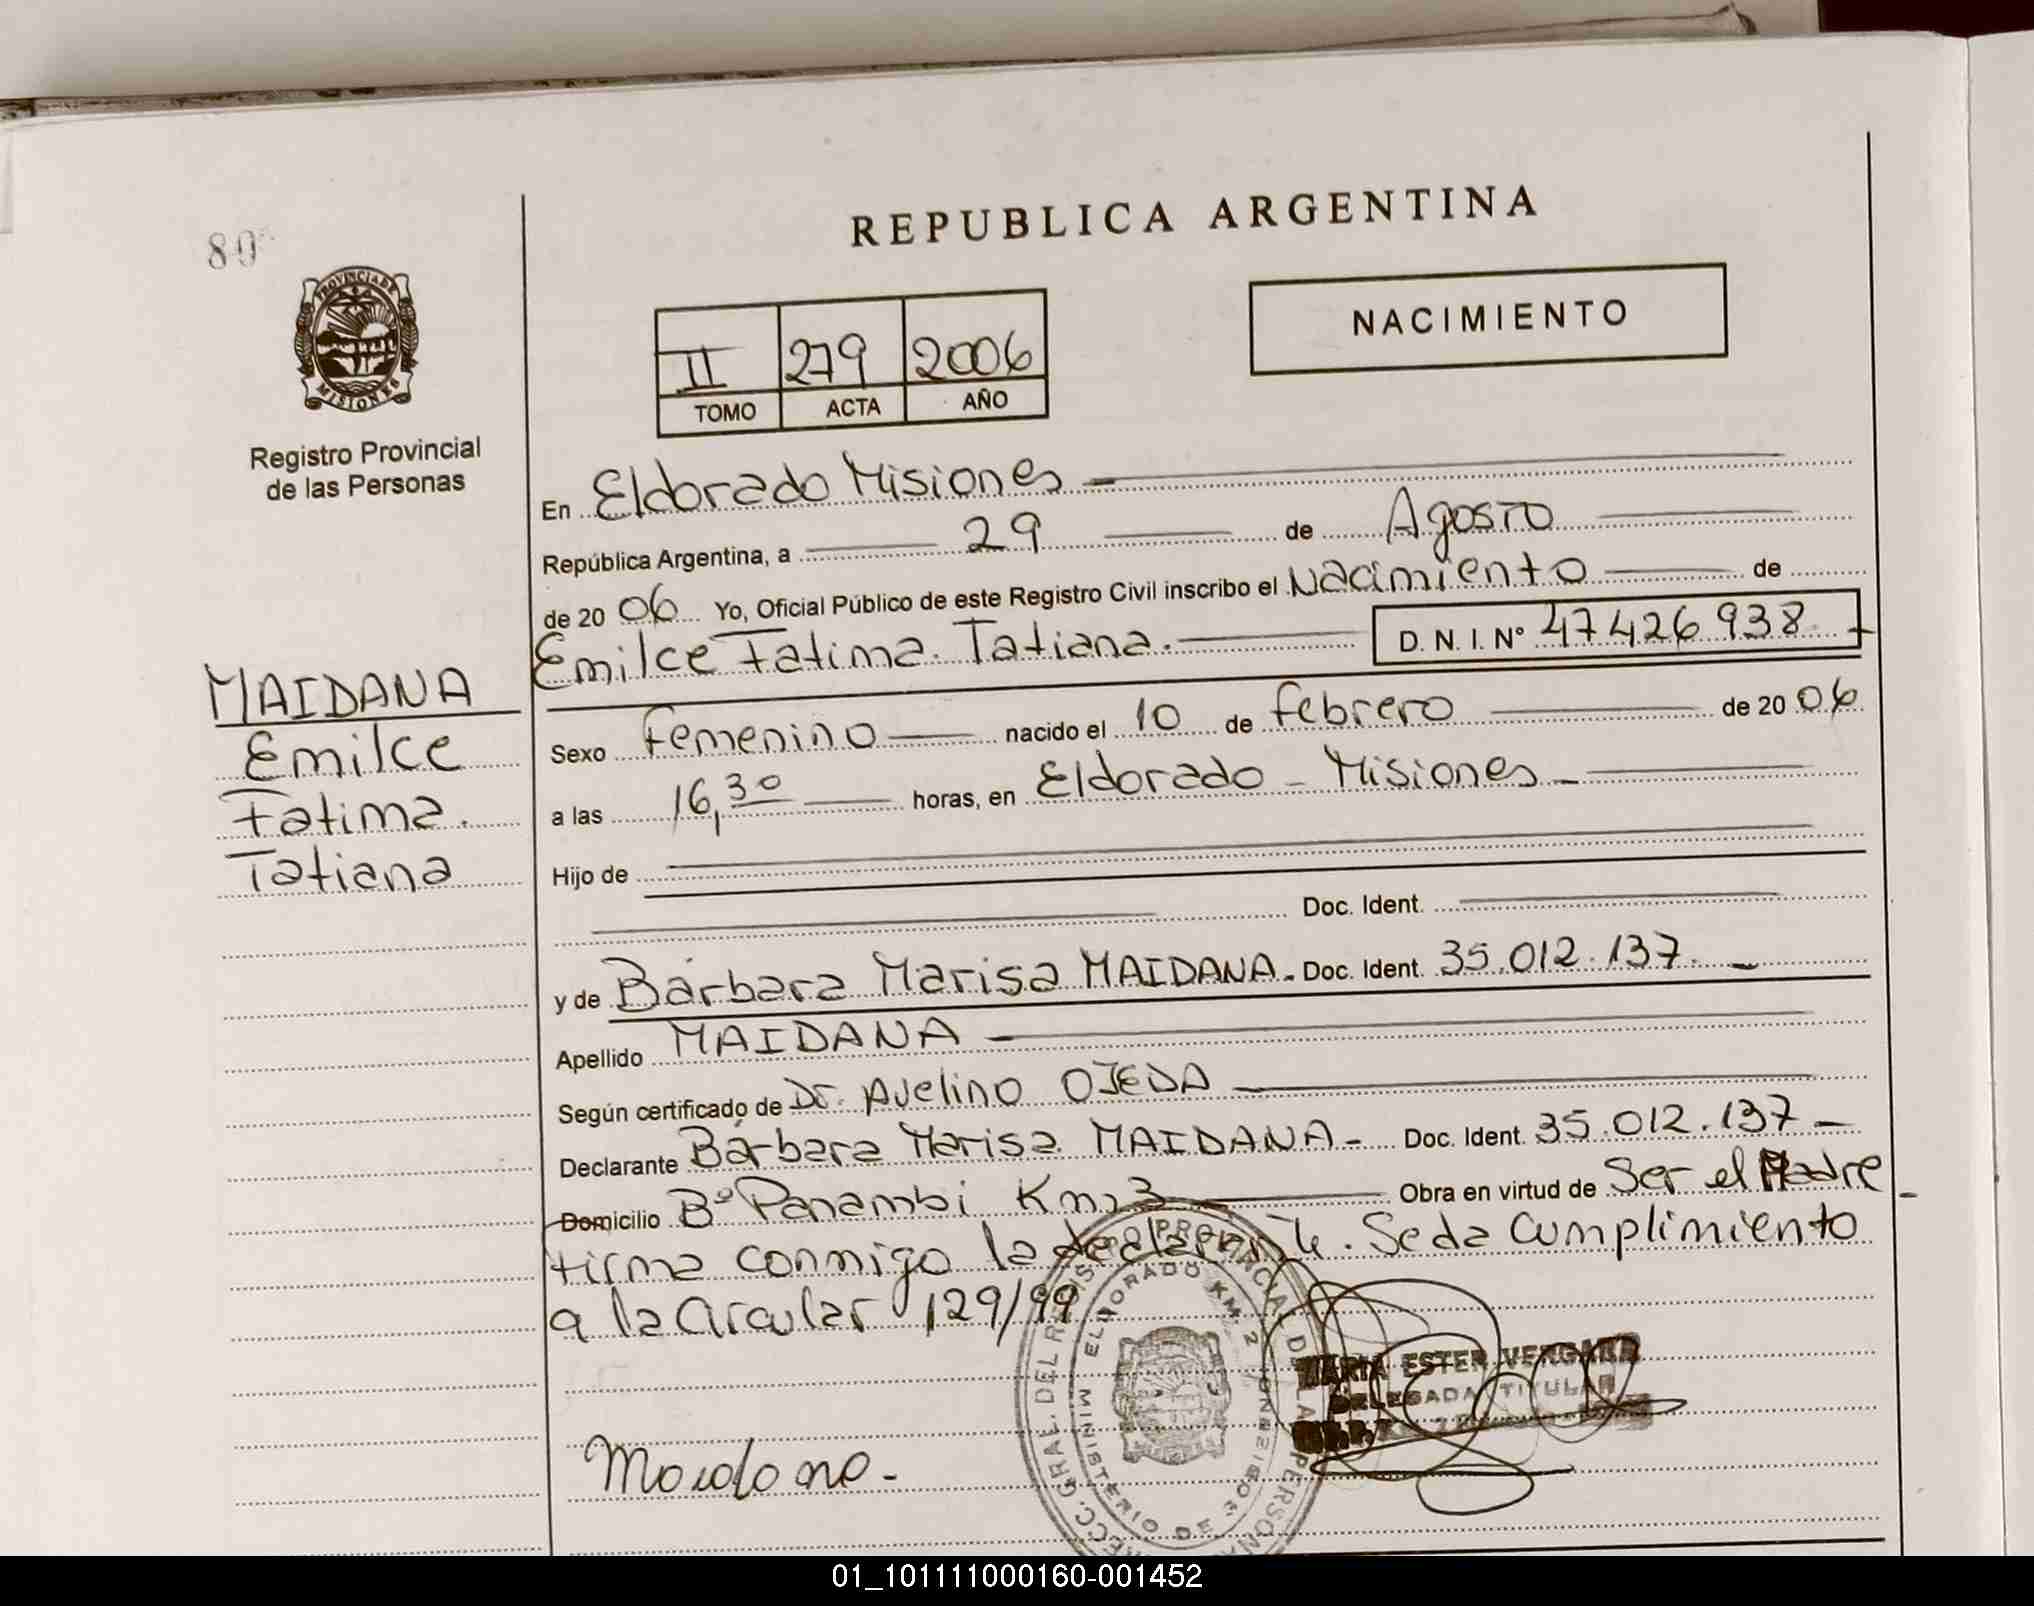 REPUBLICA ARGENTINA
80
PROVINCIA DE
MISIONES
Registro Provincial
de las Personas
II 279 2006
TOMO ACTA AÑO
NACIMIENTO
En Eldorado Misiones
República Argentina, a 29 de Agosto
de 2006 Yo, Oficial Público de este Registro Civil inscribo el Nacimiento de
Emilce Fatima Tatiana. D. N. I. Nº 47426938
MAIDANA
Emilce
Fatima
Tatiana
Sexo Femenino nacido el 10 de febrero de 2006
a las 16,30 horas, en Eldorado - Misiones -
Hijo de
Doc. Ident.
y de Bárbara Marisa MAIDANA - Doc. Ident. 35.012.137. -
Apellido MAIDANA
Según certificado de Dr. Avelino OJEDA
Declarante Bárbara Marisa MAIDANA - Doc. Ident. 35.012.137 -
Domicilio Bº Panambi Km 3 Obra en virtud de Ser el Madre -
firma conmigo la declarante. Se da cumplimiento
a la Circular 129/99
MARIA ESTER VERGARA
DELEGADA TITULAR
Maidana -
ELDORADO KM. 2
MINISTERIO DE
01_101111000160-001452